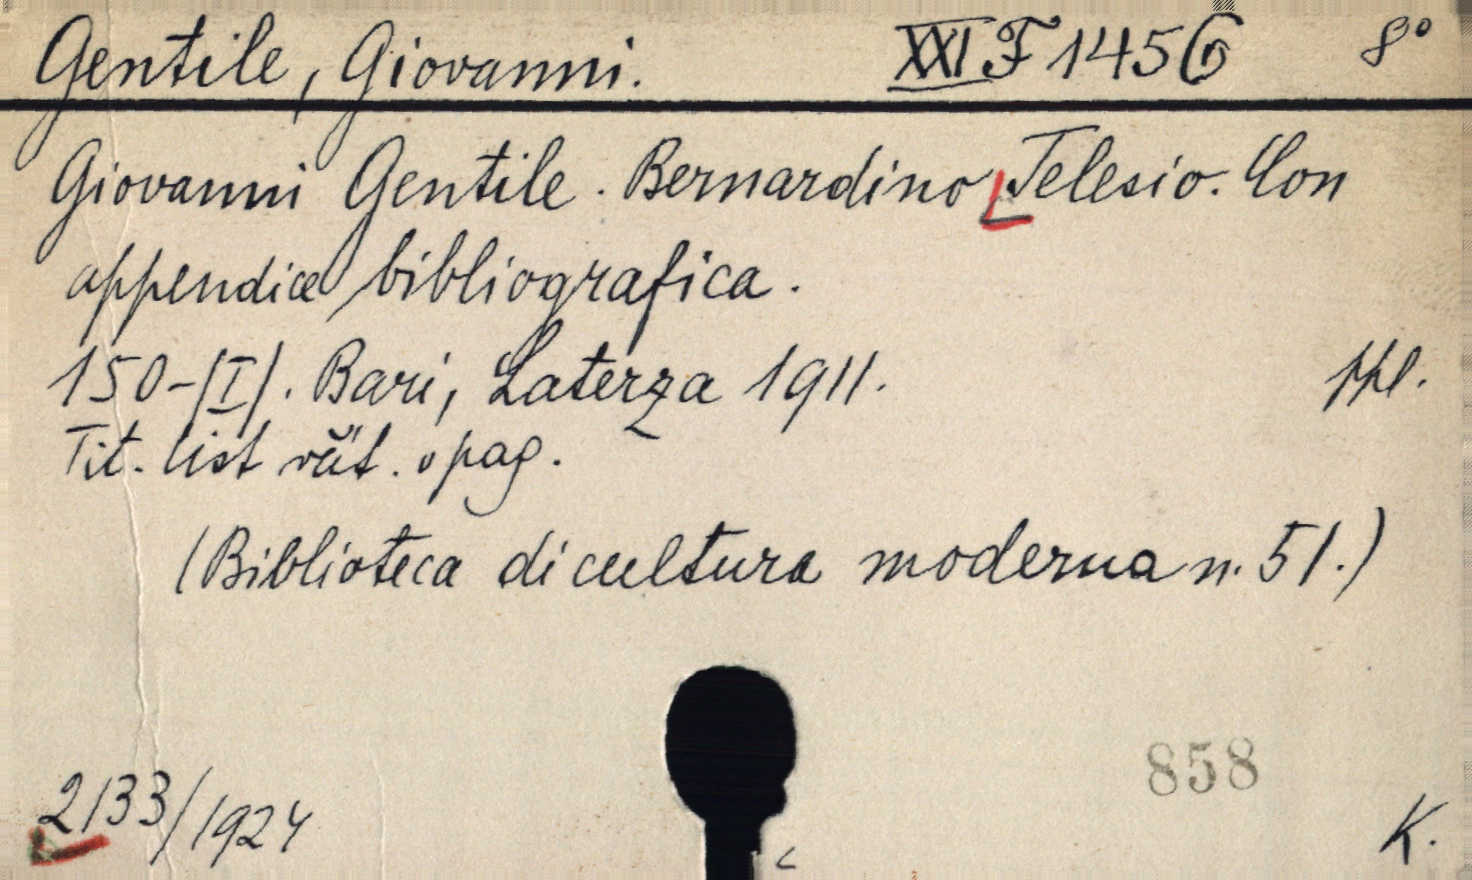 Gentile, Giovanni. XXI F 1456 8°
Giovanni Gentile. Bernardino Telesio. Con
appendice bibliografica.
150-/I/. Bari, Laterza 1911. ppl.
Tit. list včít. v pag.
(Biblioteca di cultura moderna n. 51.)
858
2133/1924
K.